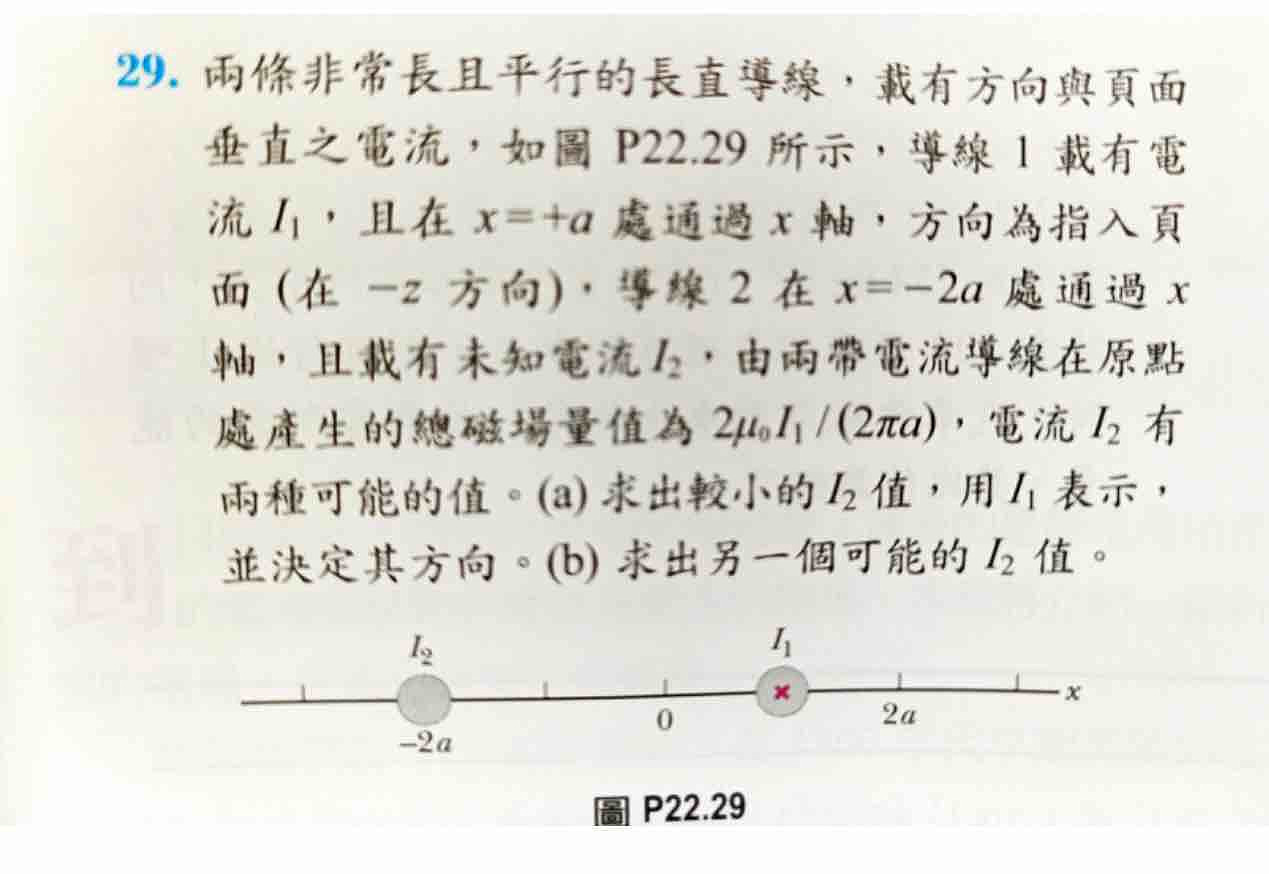 29. 兩條非常長且平行的長直導線，載有方向與頁面
垂直之電流，如圖 P22.29 所示，導線 1 載有電
流 I₁，且在 x=+a 處通過 x 軸，方向為指入頁
面 (在 −z 方向)，導線 2 在 x=−2a 處通過 x
軸，且載有未知電流 I₂，由兩帶電流導線在原點
處產生的總磁場量值為 2μ₀I₁/(2πa)，電流 I₂ 有
兩種可能的值。(a) 求出較小的 I₂ 值，用 I₁ 表示，
並決定其方向。(b) 求出另一個可能的 I₂ 值。
I₂ I₁
x
−2a 0 2a
圖 P22.29